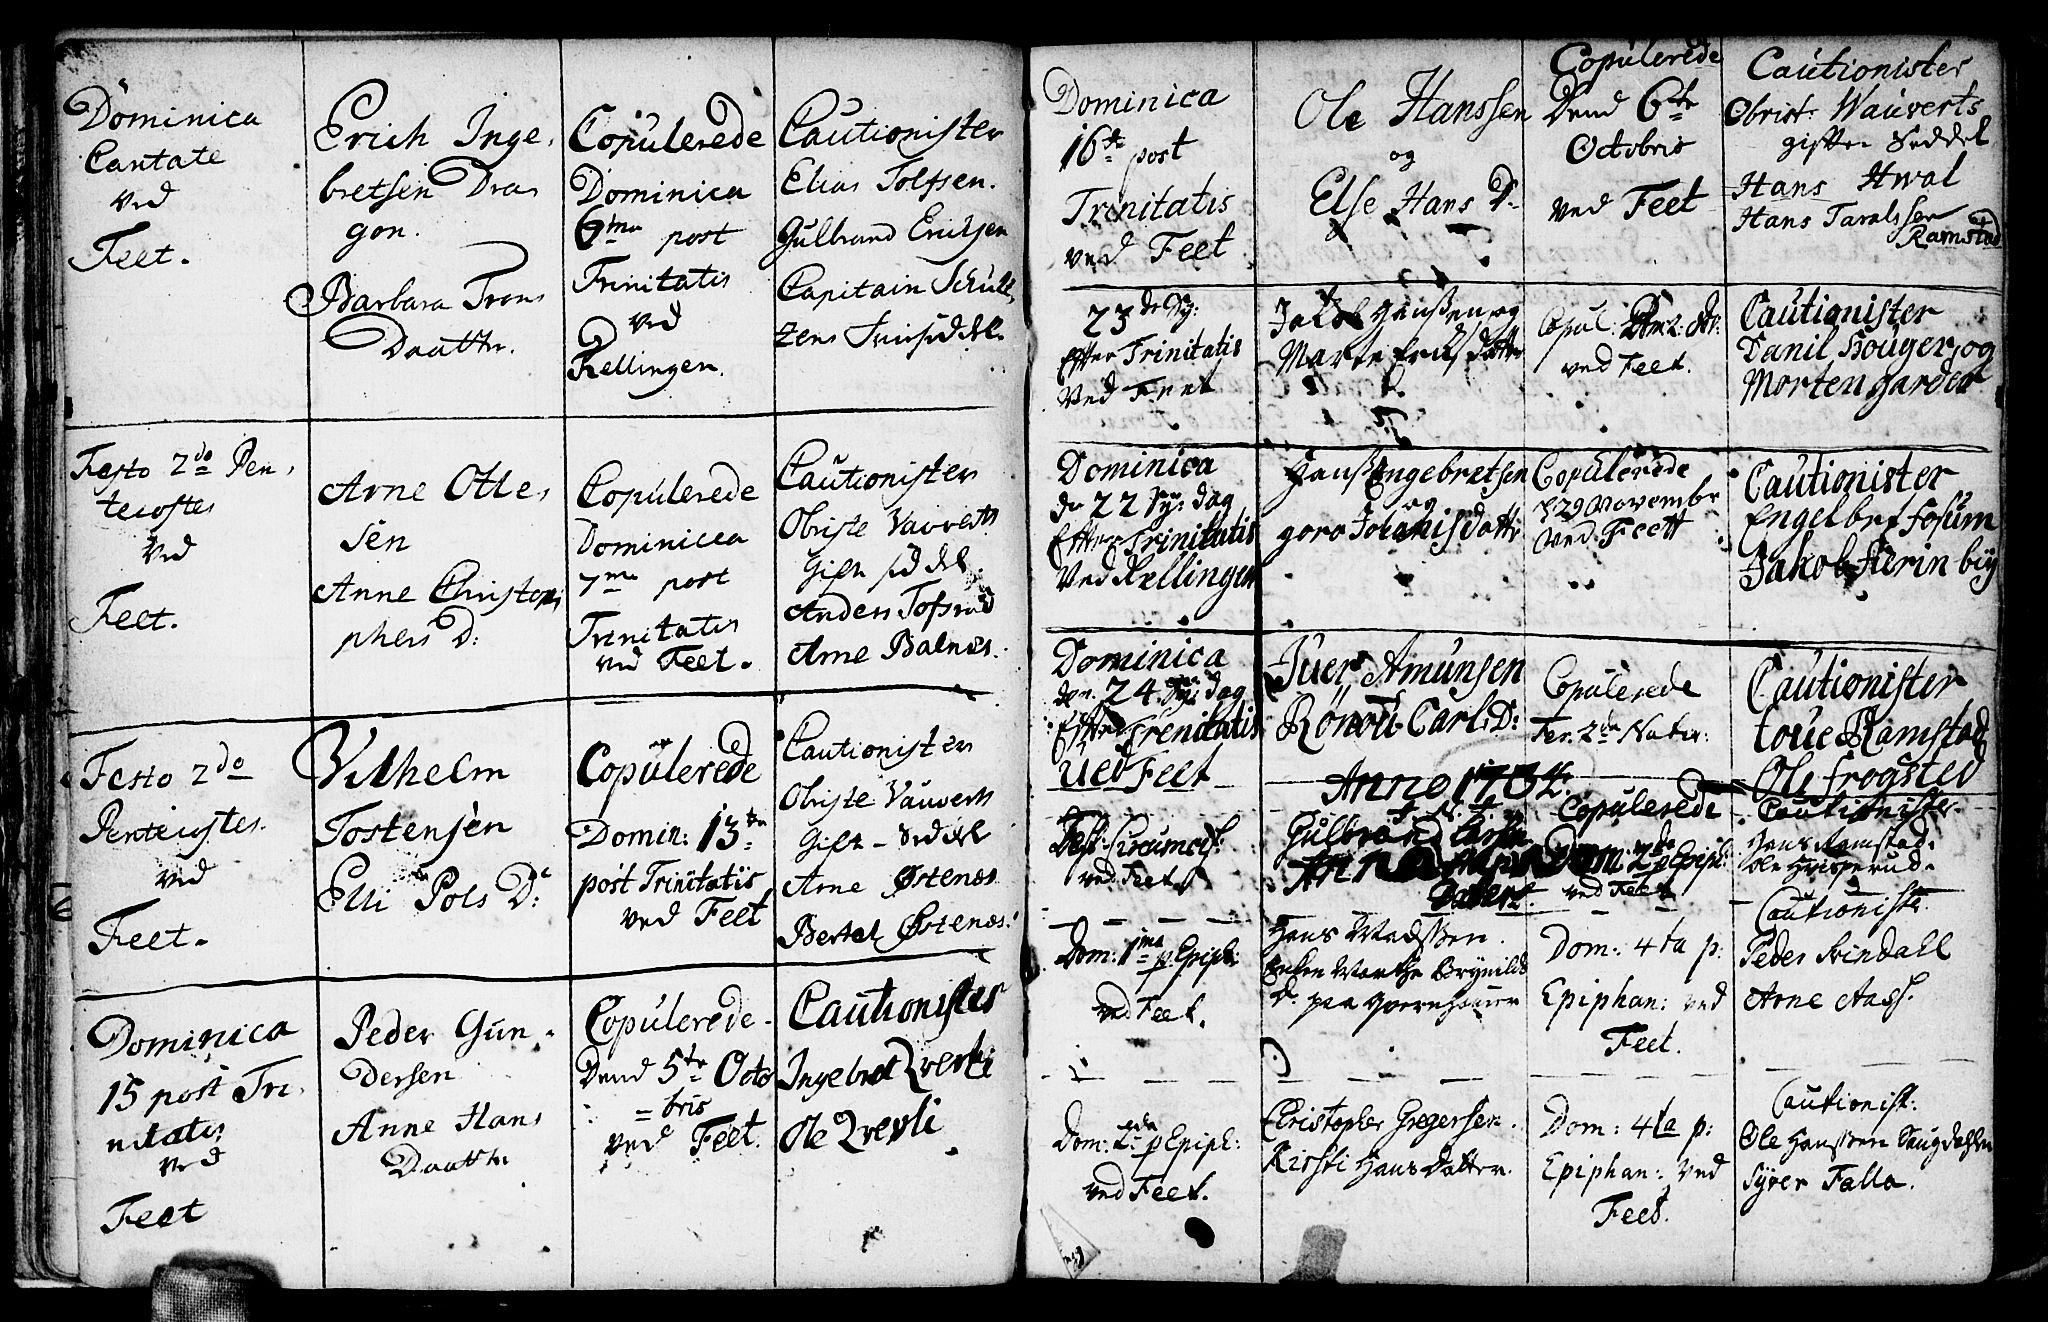 Dominica
Cantate
ved
Feet.
Erich Inge,
bretsen Dra,
gon.
Barbara Trons
Daatter.
Copulerede
Dominica
6ma post
Trinitatis
ved
Kellingen.
Cautionister
Elias Tolfsen.
Gulbrand Ericksen
Capitain Schult,
zens
Festo 2do Pen,
tecostes
ved
Feet.
Arne Olle,
sen
Anne Christop,
phers D:
Copulerede
Dominicea
7ma post
Trinitatis
ved Feet.
Cautionister
Obriste Vauverts
Gift seddel.
Anders Tofsrud
Arne Balnes.
Festo 2do
Pentecostes.
ved
Feet.
Vilhelm
Tostensen
Elli Pols D:
Copulerede
Domin: 13tia
post Trinitatis
ved Feet
Cautionister
Obriste Vauverts
Gift - Seddel
Arne Østenes
Bertel Østenes.
Dominica
15 post Tri,
nitatis
ved
Feet
Peder Gun,
dersen
Anne Hans
Daatter
Copulerede
Dend 5te Octo
= bris
ved Feet.
Cautionister
Ingebret Qverli
Ole Qverli.
Dominica
16de post
Trinitatis
ved Feet
Ole Hanssen
og
Else Hans D.
Copulerede
Dend 6te
Octobris
ved Feet
Cautionister
Obrist: Wauverts
gifte Seddel
Hans Hwal
Hans Taralssen
Ramstad
23de Sy:
Efter Trinitatis
Ved Feet
Jakob Hanssen og
Marte Erichs datter
Copul:
ved Feet.
Cautionister
Danil Houger, og
Morten garder
Dominica
da 22 Syndag
Efter Trinitatis
Ved Kellingen
Hans Engebretsen
og
goro Johanisdatter
Copulerede
d. 29 Novembr
Ved Feett
Cautionister
Engelbret fosum
Jakob Herin bÿ
Dominica
den. 24. Syndag
Efter Trenitatis
Ued Feet
Iuer Amunsen
Rønou Carls D:
Copulerede
Fer. 2da Nativ:
Cautionister
toue Ramstad
Ole frogsted
Anno 1734.
Fest. Circumcis.
ved Feet
Gulbrand
Anna
Datter.
Copulerede
Dom. 2da p Epiph:
ved Feet
Cautionister
Hans Ramstad.
ole
Dom: 1ma p. Epiph:
ved Feet.
Hans Madssen.
Enken Marthe Brynilds
D. paa
Dom: 4ta p:
Epiphan: ved
Feet.
Cautionister.
Peder Svindall
Arne Aass.
Dom: 2da p Epiph:
ved Feet.
Christopher Gregersen.
Kirsti Hans datter.
Dom: 4ta p:
Epiphan: ved
Feet.
Cautionist:
Ole Hanssen Haugdahlen
Syver Falla.